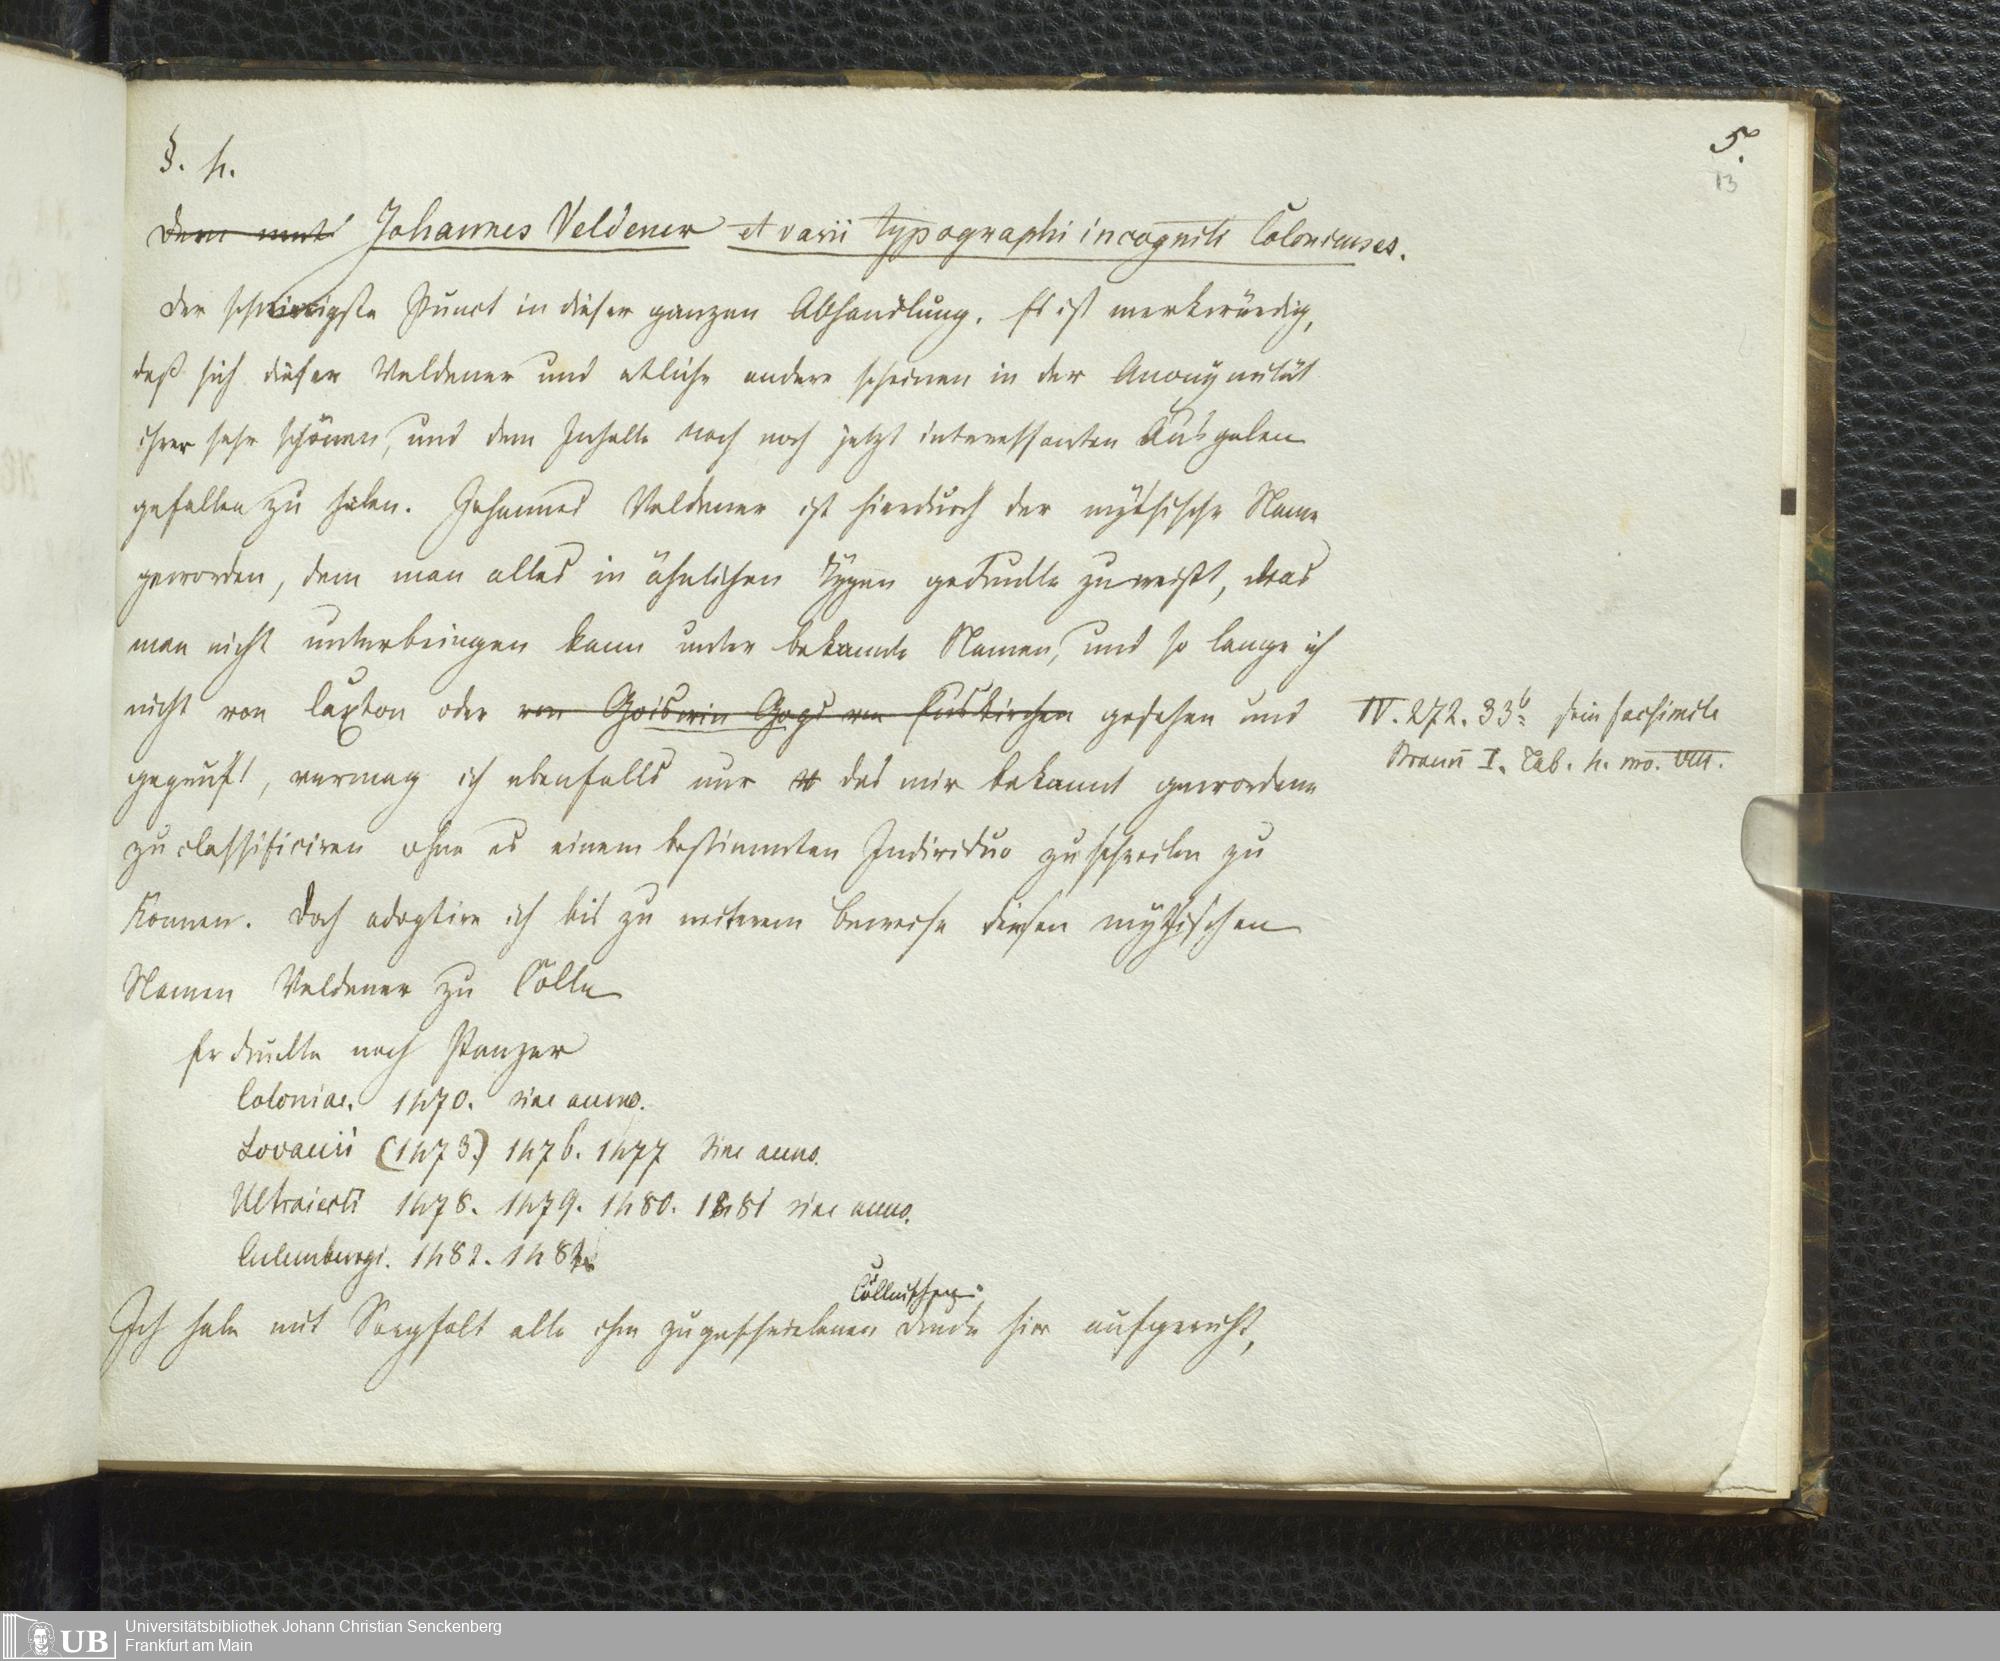 5.
13
§. 4.
Johannes Veldener et varii typographi incogniti Colonienses.
Der schwierigste Punct in dieser ganzen Abhandlung. Es ist merkwürdig,
daß sich dieser Veldener und etliche andere scheinen in der Anonymität
ihrer sehr schönen, und dem Inhalte nach noch jetzt interessanten Ausgaben
gefallen zu haben. Johannes Veldener ist hierdurch der mythische Name
geworden, dem man alles in ähnlichen Typen gedruckte zuweißt, was
man nicht unterbringen kann unter bekannte Namen, und so lange ich
nicht von Caxton oder von Goiswin Gops von Euskirchen gesehen und
geprüft, vermag ich ebenfalls nur das mir bekannt gewordene
zu classificiren ohne es einem bestimmten Individuo zuschreiben zu
können. Doch adoptire ich bis zu weiterem Beweise diesen mythischen
Namen Veldener zu Cölln
IV. 272. 33b sein facsimile
Braun I. Tab. 4. no. VIII.
Er druckte nach Panzer
Coloniae. 1470. sine anno.
Lovanii (1473.) 1476. 1477 sine anno.
Ultraiecti 1478. 1479. 1480. 1481 sine anno.
Culemburgi. 1482. 148
Cöllnischen
Ich habe mit Sorgfalt alle ihm zugeschriebenen Drucke hier aufgereiht,
Universitätsbibliothek Johann Christian Senckenberg
UB
Frankfurt am Main